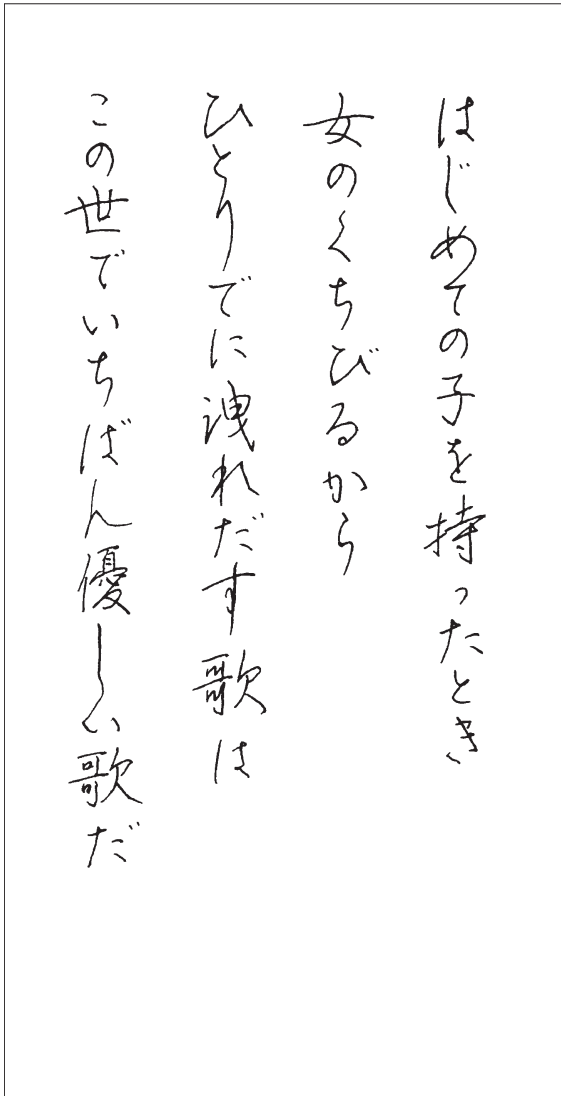 はじめての子を持ったとき
女のくちびるから
ひとりでに洩れだす歌は
この世でいちばん優しい歌だ